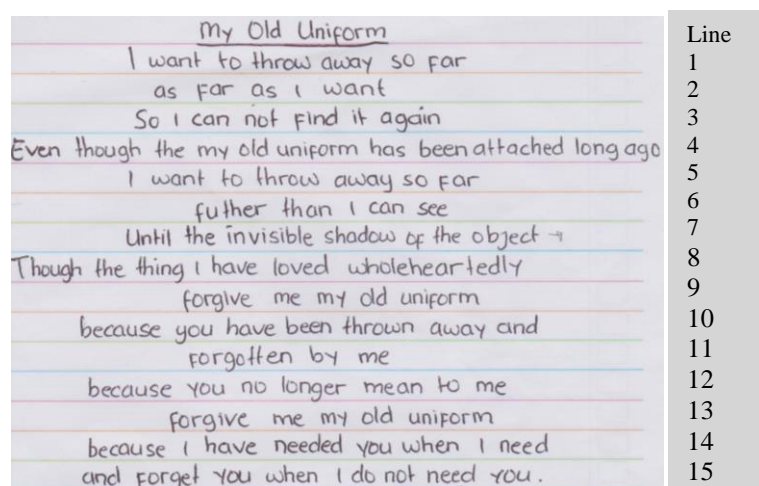 My Old Uniform
I want to throw away so far
as far as I want
So I can not find it again
Even though the my old uniform has been attached long ago
I want to throw away so far
futher than I can see
Until the invisible shadow of the object →
Though the thing I have loved wholeheartedly
forgive me my old uniform
because you have been thrown away and
forgotten by me
because you no longer mean to me
forgive me my old uniform
because I have needed you when I need
and forget you when I do not need you.
Line
1
2
3
4
5
6
7
8
9
10
11
12
13
14
15